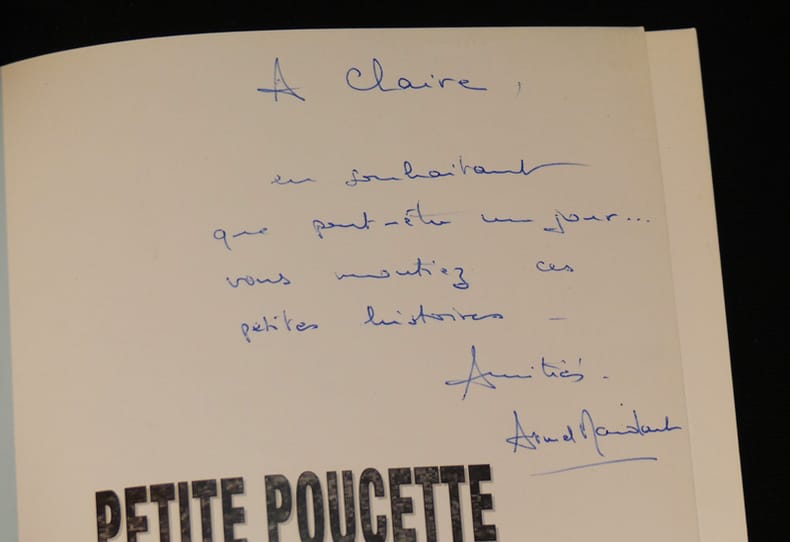 A Claire,
en souhaitant
que peut-être un jour...
vous montiez ces
petites histoires -
Amitiés.
Armel
PETITE POUCETTE